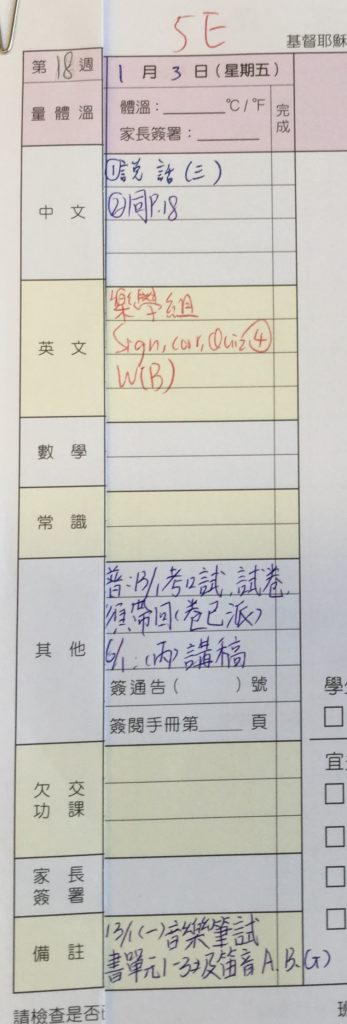 5E
基督耶穌
第18週
1月3日(星期五)
量體溫
體溫：______°C/°F
家長簽署：______
完成
中文
①說話(三)
②同P.18
英文
樂學組
Sign, corr, Quiz④
W(B)
數學
常識
其他
普：13/1考口試,試卷,
須帶回(卷已派)
6/1：(丙)講稿
簽通告( )號
簽閱手冊第____頁
欠交功課
家長簽署
備註
13/1(一)音樂筆試
書單元1-3及笛音A.B.(G)
請檢查是否